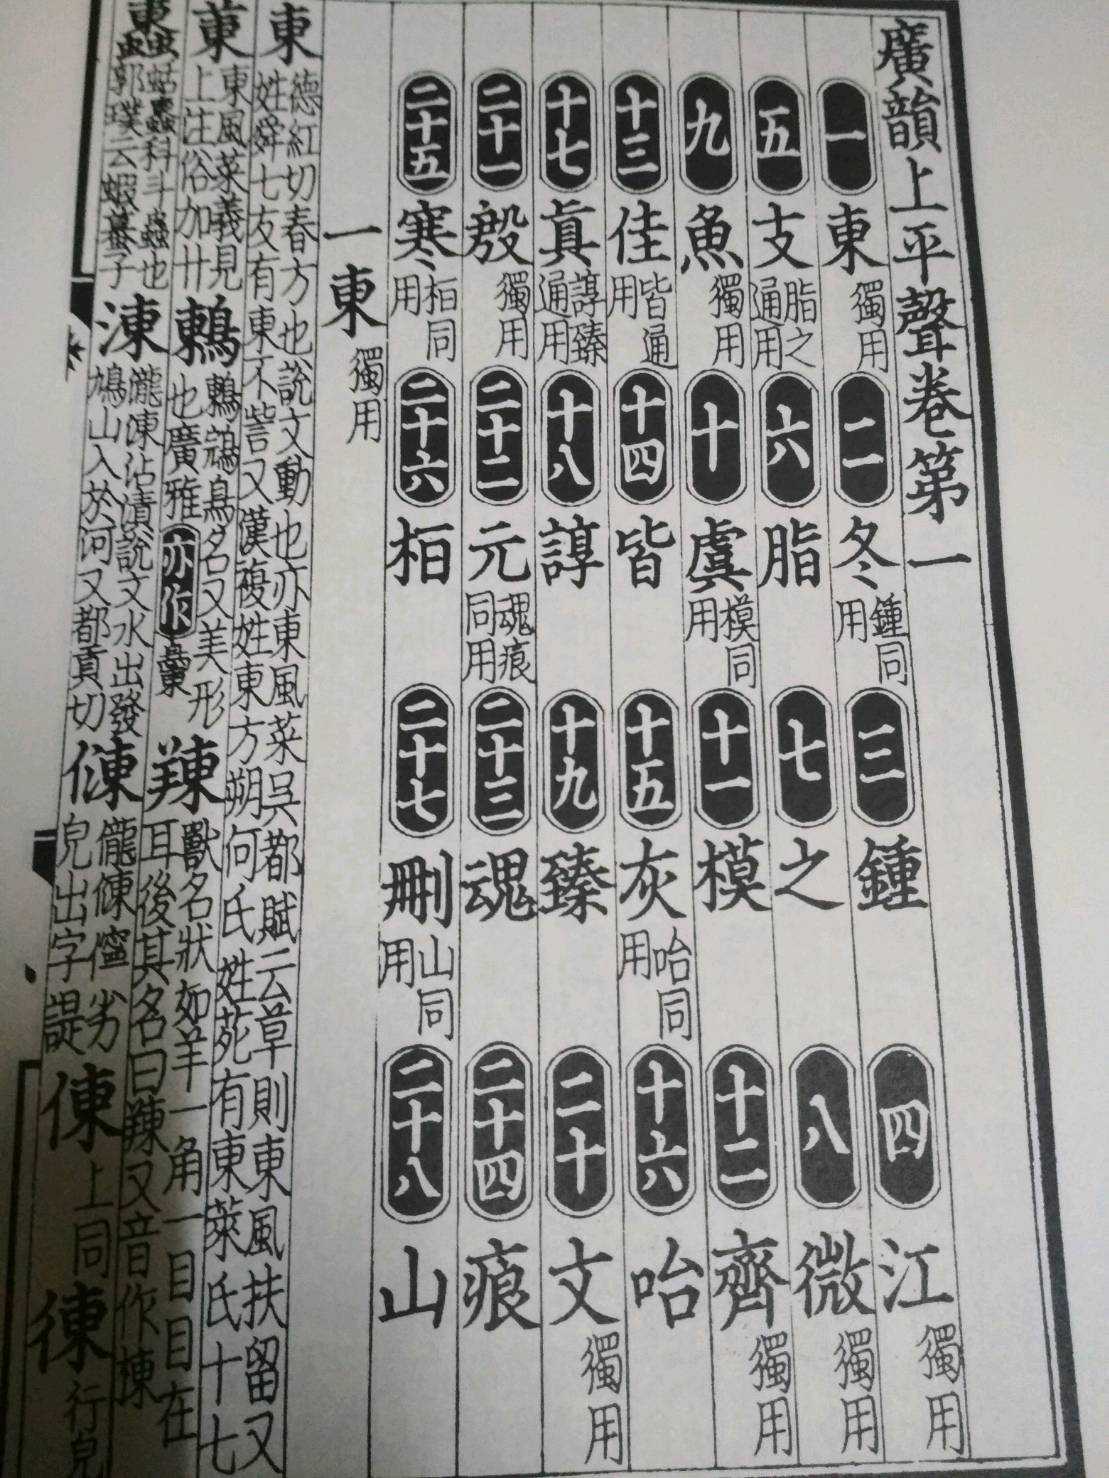 廣韻上平聲卷第一
一東獨用 二冬鍾同用 三鍾 四江獨用
五支脂之通用 六脂 七之 八微獨用
九魚獨用 十虞模同用 十一模 十二齊獨用
十三佳皆通用 十四皆 十五灰咍同用 十六咍
十七眞諄臻通用 十八諄 十九臻 二十文獨用
二十一殷獨用 二十二元魂痕同用 二十三魂 二十四痕
二十五寒桓同用 二十六桓 二十七刪山同用 二十八山
一東獨用
東德紅切春方也說文動也亦東風菜吳都賦云草則東風扶留又
姓舜七友有東不訾又漢複姓東方朔何氏姓苑有東萊氏十七
菄東風菜義見上注俗加艹 鶇鶇鵍鳥名又美形也廣雅亦作 䍶獸名狀如羊一角一目目在耳後其名曰䍶又音作棟
蛞蠹科斗蟲也郭璞云蝦蟇子 涷瀧涷沾漬說文水出發鳩山入於河又都貢切 㑈儱㑈儜劣皃出字諟 倲上同 徚行皃